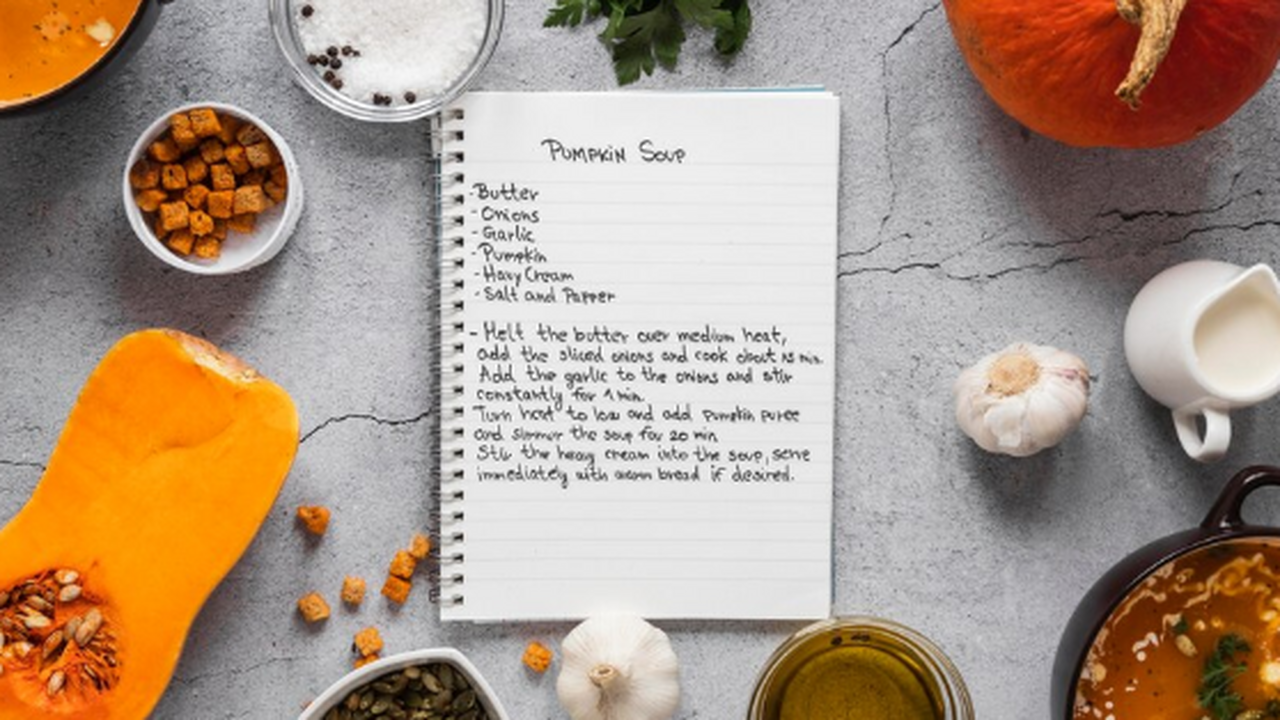 Pumpkin Soup
-Butter
-Onions
-Garlic
-Pumpkin
-Havy Cream
-Salt and Papper
- Melt the butter over medium heat,
add the sliced onions and cook about 15 min.
Add the garlic to the onions and stir
constantly for 1 min.
Turn heat to low and add pumpkin puree
and simmer the soup for 20 min
Stir the heavy cream into the soup, serve
immediately with warm bread if desired.